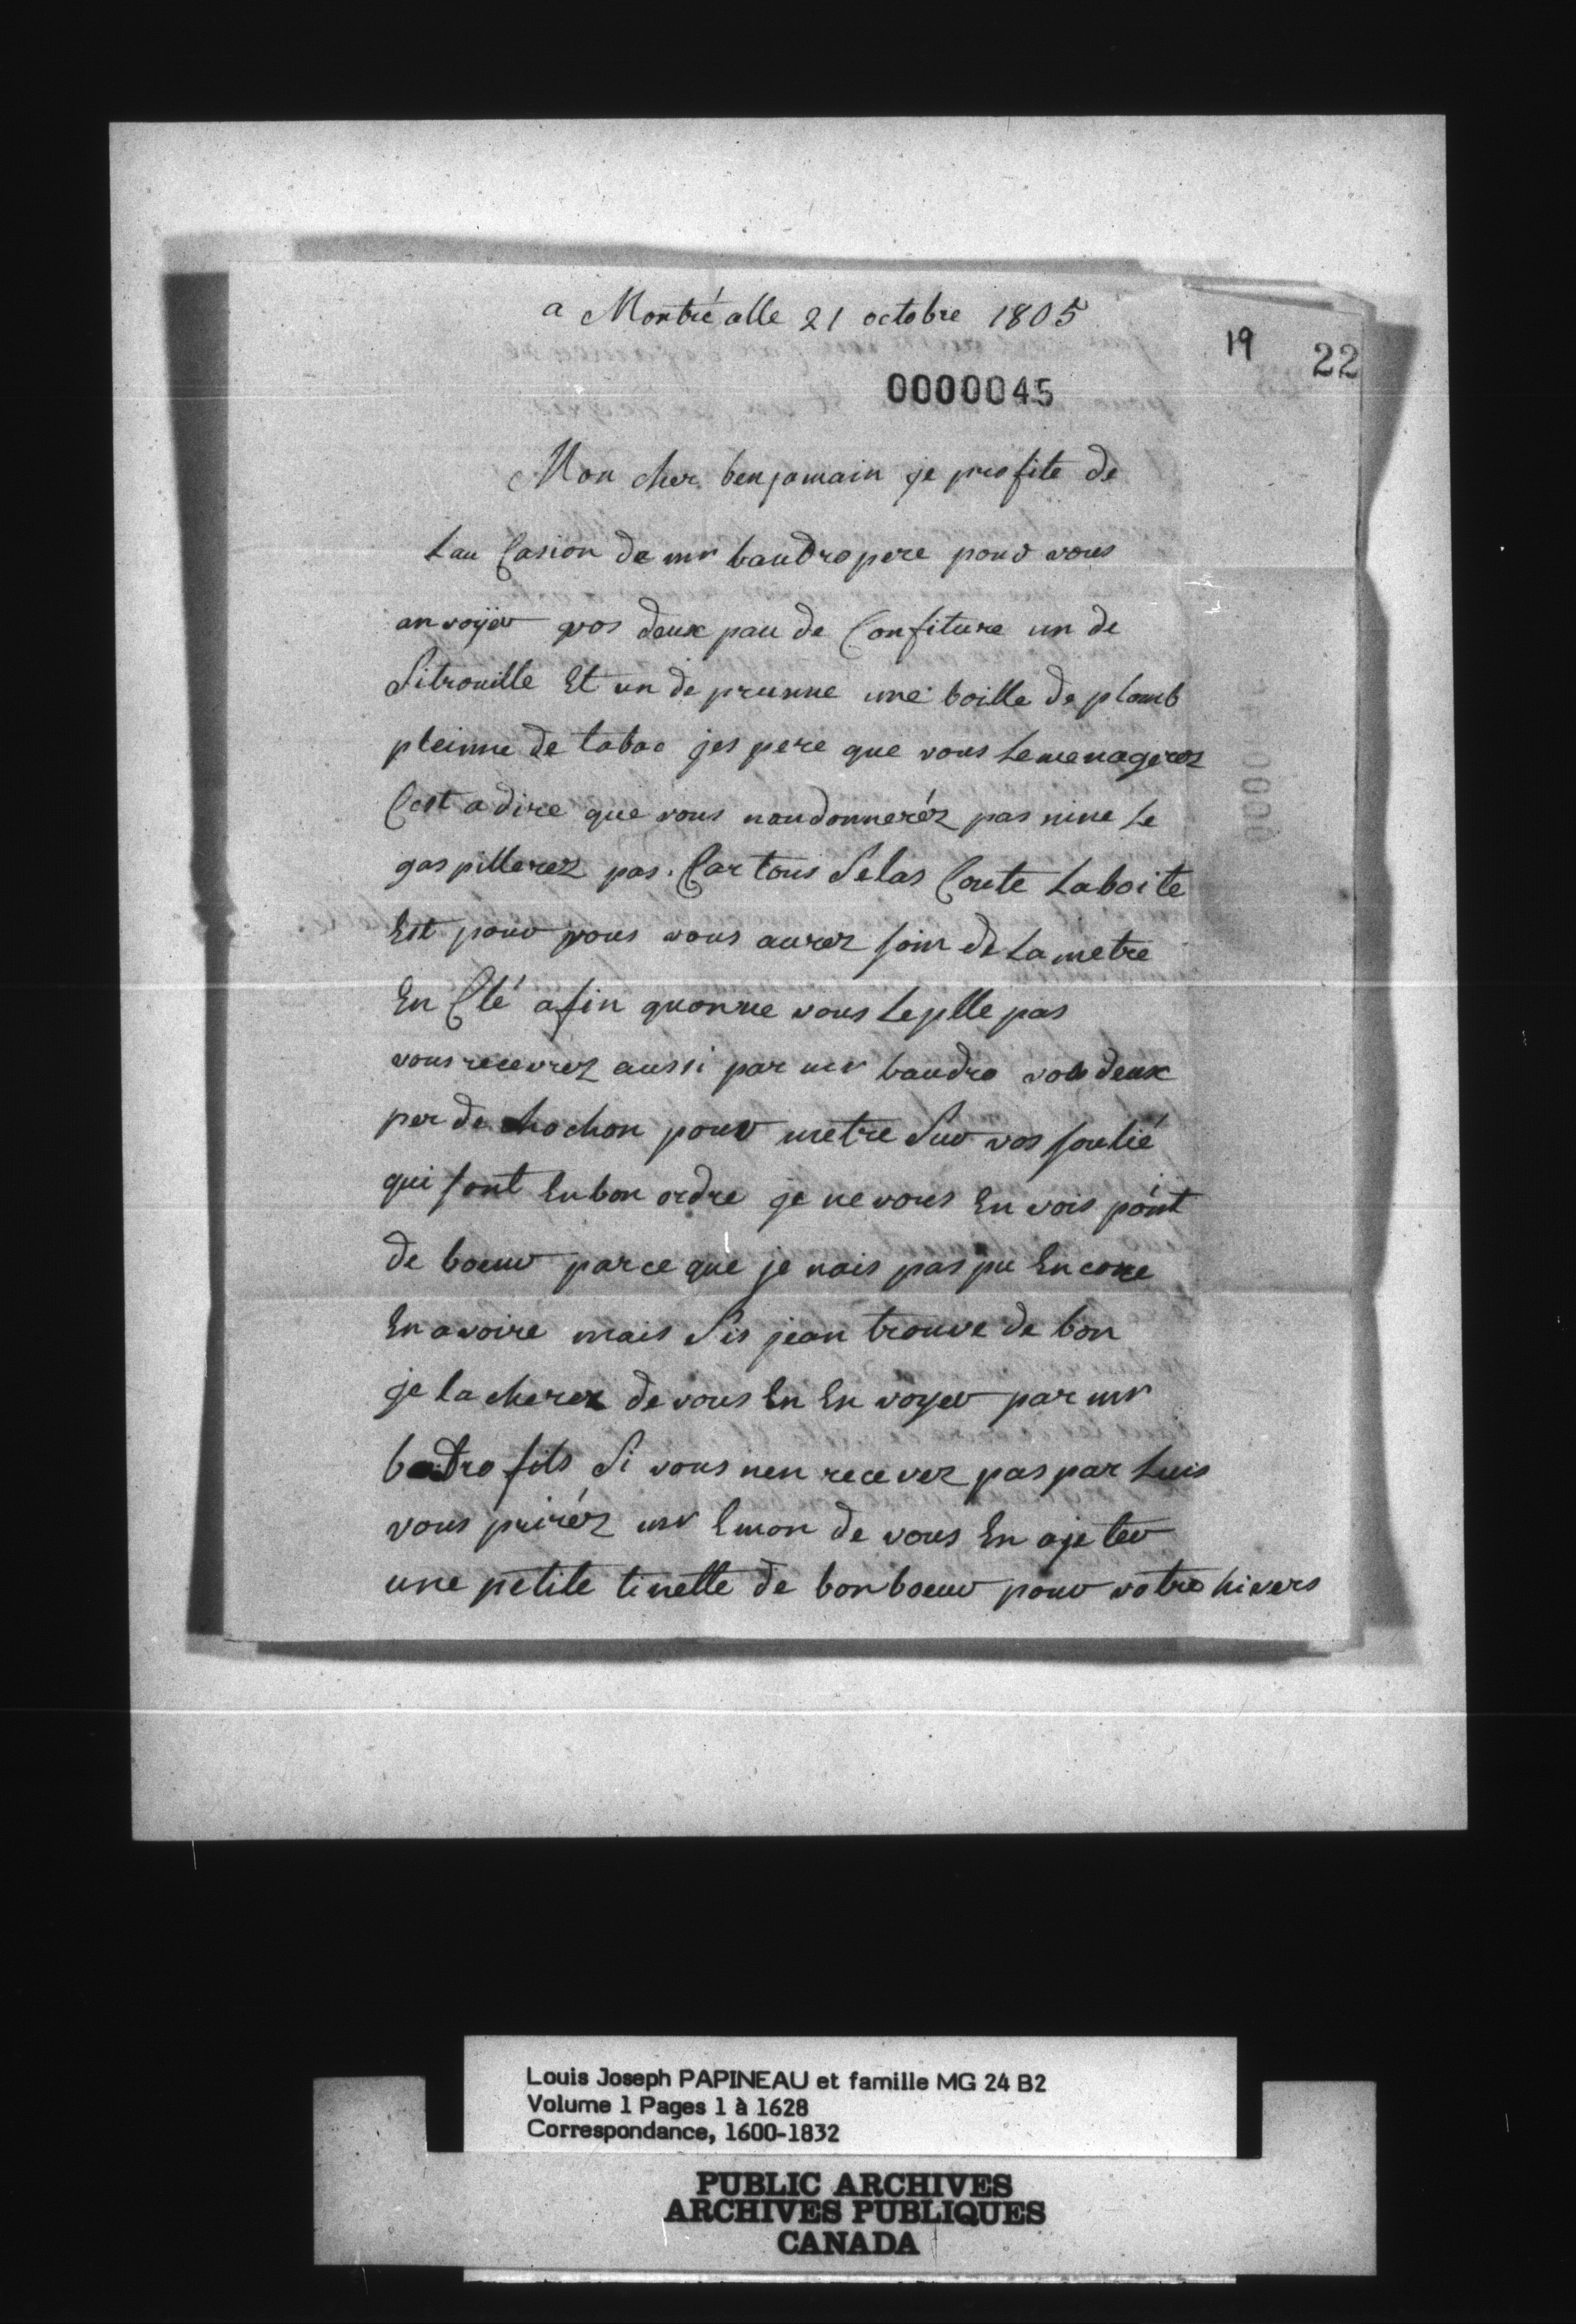 a Montréalle 21 octobre 1805
19 22
0000045
Mon cher benjamain je profite de
Lau Casion de mr baudro pere pour vous
anvoÿer vos deux pau de Confiture un de
Sitrouille Et un de prunne une boille de plomb
pleinne de tabac jes pere que vous Lemenagerez
Cest a dire que vous naudonneréz pas nine Le
gaspillerez pas. Car tous Selas Coute Laboite
Est pour vous vous aurez soin de La metre
En Clé afin quonne vous Lepille pas
vous recevrez aussi par mr baudro vos deux
per de chochon pour metre Sur vos soulié
qui sont En bon ordre je ne vous En vois point
de boeuv parce que je nais pas pu Encore
En avoire mais Sis jean trouve de bon
je tacherez de vous En En voyer par mr
badro fils Si vous nen recevez pas par Luis
vous priréz mr Emon de vous En ajeter
une petite tinette de bon boeuv pour votre hivers
Louis Joseph PAPINEAU et famille MG 24 B2
Volume 1 Pages 1 à 1628
Correspondance, 1600-1832
PUBLIC ARCHIVES
ARCHIVES PUBLIQUES
CANADA